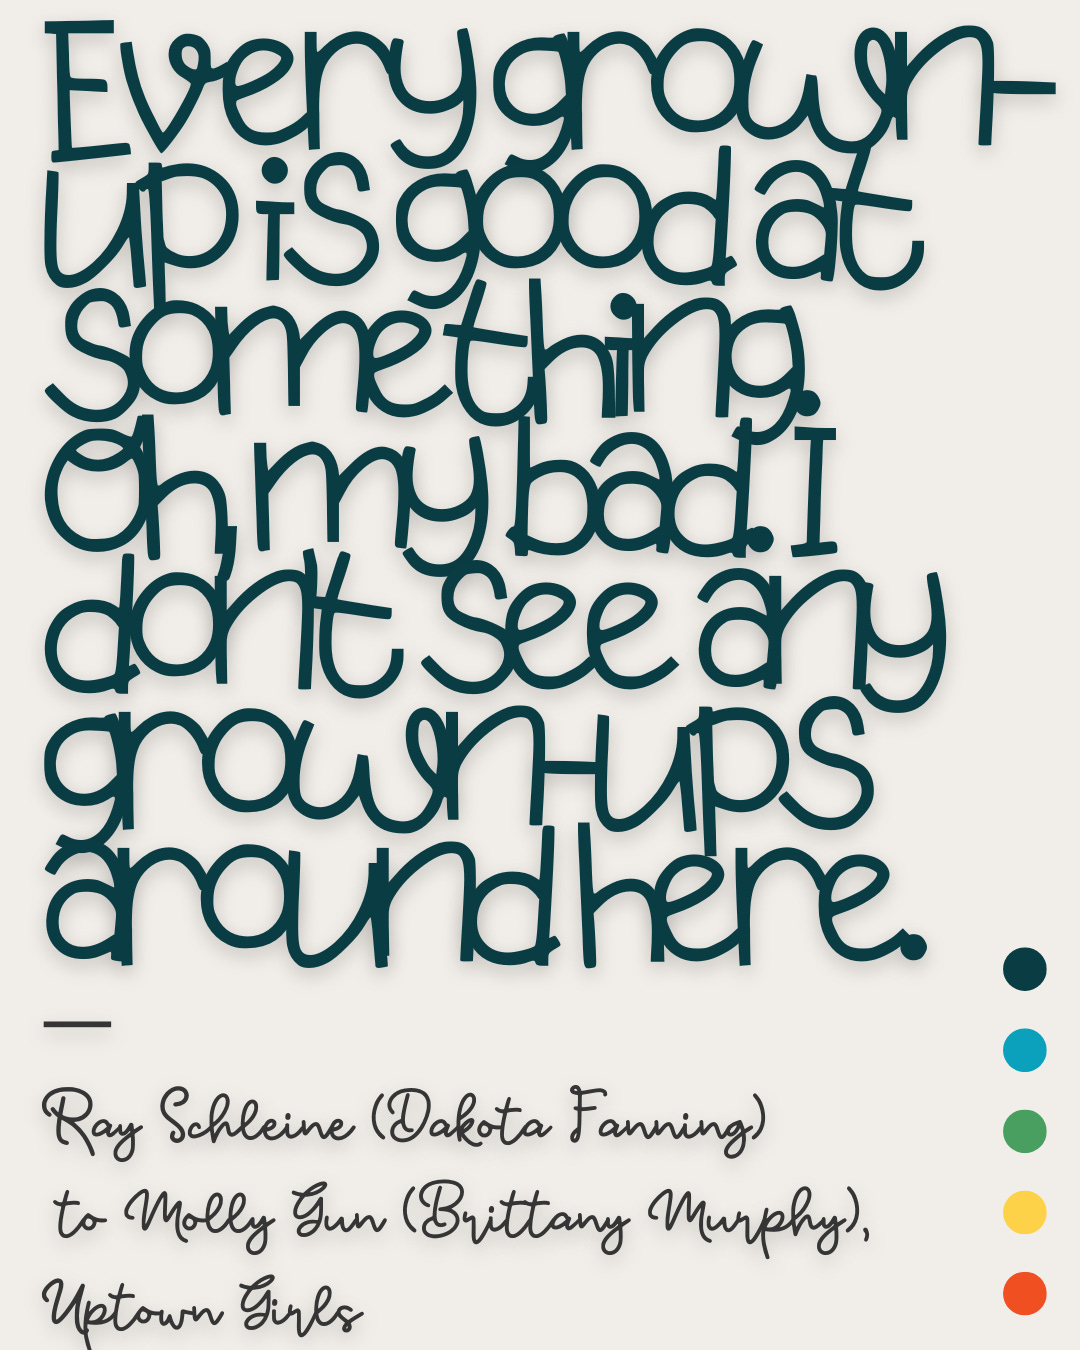 Every grown-
up is good at
something.
Oh, my bad. I
don't see any
grown-ups
around here.
—
Ray Schleine (Dakota Fanning)
to Molly Gun (Brittany Murphy),
Uptown Girls